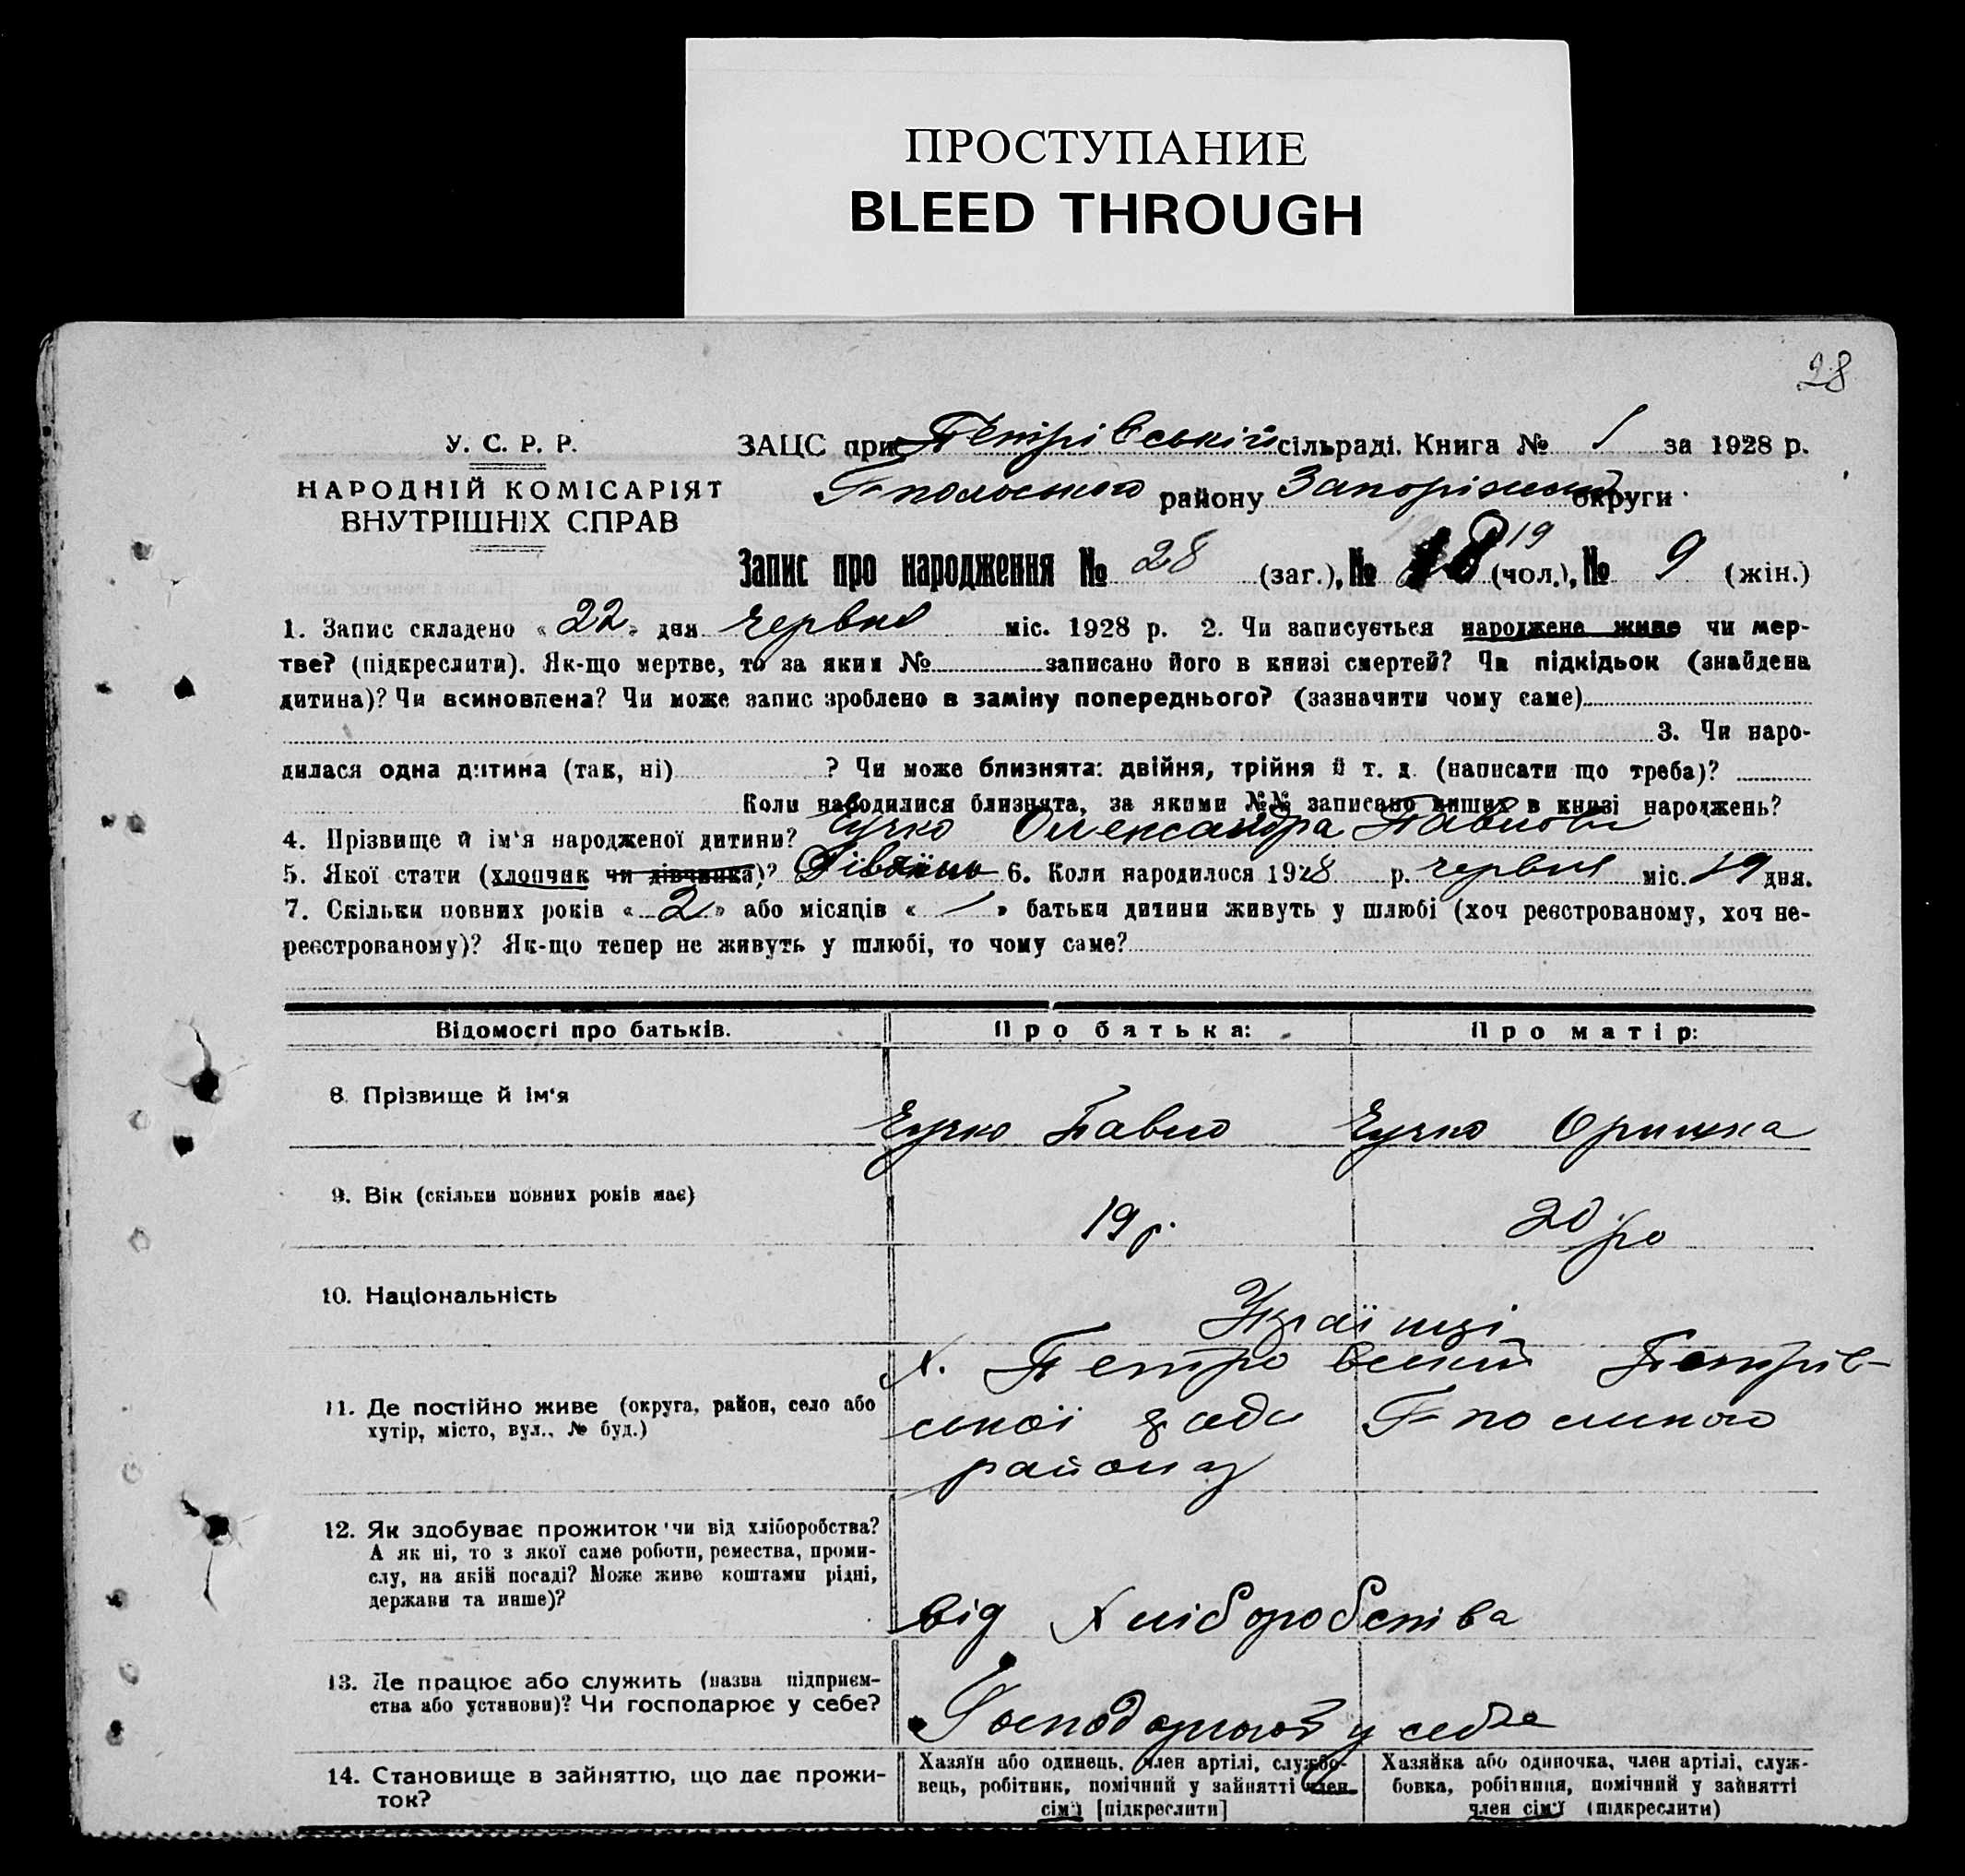 ПРОСТУПАНИЕ
BLEED THROUGH
28
У. С. Р. Р.
НАРОДНІЙ КОМІСАРІЯТ
ВНУТРІШНІХ СПРАВ
ЗАЦС при Петрівській сільраді. Книга № 1 за 1928 р.
району Запоріжської округи
Запис про народження № 28 (заг.), № 18 19 (чол.), № 9 (жін.)
1. Запис складено «22» дня червня міс. 1928 р. 2. Чи записується народжене живе чи мер-
тве? (підкреслити). Як-що мертве, то за яким № записано його в книзі смертей? Чи підкідьок (знайдена
дитина)? Чи всиновлена? Чи може запис зроблено в заміну попереднього? (зазначити чому саме)
3. Чи наро-
дилася одна дитина (так, ні) ? Чи може близнята: двійня, трійня й т. д. (написати що треба)?
Коли народилися близнята, за якими №№ записано инших в книзі народжень?
4. Прізвище й ім'я народженої дитини? Чучко Олександра Павлові
5. Якої стати (хлопчик чи дівчинка)? 6. Коли народилося 1928 р. червня міс. 19 дня.
7. Скільки повних років «2» або місяців « / » батьки дитини живуть у шлюбі (хоч реєстрованому, хоч не-
реєстрованому)? Як-що тепер не живуть у шлюбі, то чому саме?
Відомості про батьків. Про батька: Про матір:
8. Прізвище й ім'я Чучко Павло Чучко Оришка
9. Вік (скільки повних років має) 19 р. 20 ро
10. Національність Українці
11. Де постійно живе (округа, район, село або
хутір, місто, вул., № буд.)
х. Петровський Петрів-
ської ради
району
12. Як здобуває прожиток чи від хліборобства?
А як ні, то з якої саме роботи, ремества, проми-
слу, на якій посаді? Може живе коштами рідні,
держави та инше)?
від Хліборобства
13. Де працює або служить (назва підприєм-
ства або установи)? Чи господарює у себе?
Господарюют у себе
14. Становище в зайняттю, що дає прожи-
ток?
Хазяїн або одинець, член артілі, службо-
вець, робітник, помічний у зайнятті член
сім'ї [підкреслити]
Хазяйка або одиночка, член артілі, служ-
бовка, робітниця, помічний у зайнятті
член сім'ї (підкреслити)